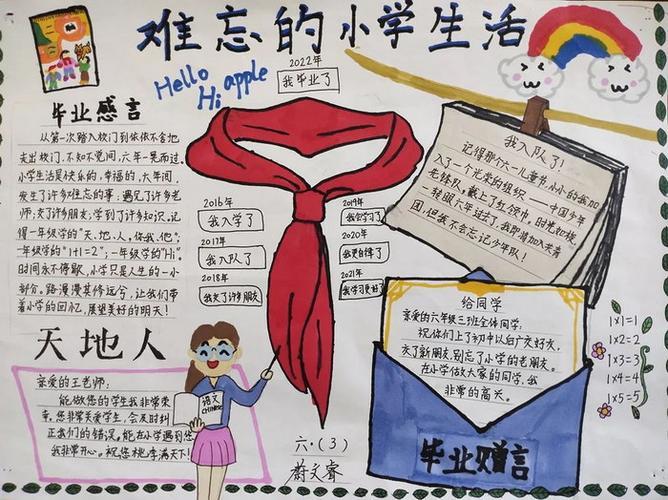 难忘的小学生活
Hello
Hi apple
2022年
我毕业了
毕业感言
从第一次踏入校门到依依不舍地
走出校门，不知不觉间，六年一晃而过，
小学生活是快乐的，幸福的，六年间，
发生了许多难忘的事：遇见了许多老
师，交了许多朋友，学到了许多知识，记
得一年级学的“天，地，人，你，我，他”；
一年级学的“1+1=2”；一年级学的“Hi”。
时间永不停歇，小学只是人生的一小
部分，路漫漫其修远兮，让我们带
着小学的回忆，展望美好的明天！
天地人
亲爱的王老师：
能做您的学生我非常荣
幸，您非常关爱学生，会及时纠
正我们的错误，能在小学遇到您
我非常开心。祝您桃李满天下！
语文
CHINESE
2016年
我入学了
2017年
我入队了
2018年
我交了许多朋友
2019年
我会学习了
2020年
我更自律了
2021年
我学习更好了
六·(3)
蔚文睿
我入队了！
记得那个六一儿童节，小小的我加
入了一个光荣的组织——中国少年
先锋队，戴上了红领巾，时光如梭，
一转眼六年过去了，我即将加入共青
团，但我不会忘记少年队！
给同学
亲爱的六年级三班全体同学：
祝你们上了初中以后广交好友，
交了新朋友，别忘了小学的老朋友。
在小学做大家的同学，我
非常的高兴。
毕业赠言
1×1=1
1×2=2
1×3=3
1×4=4
1×5=5